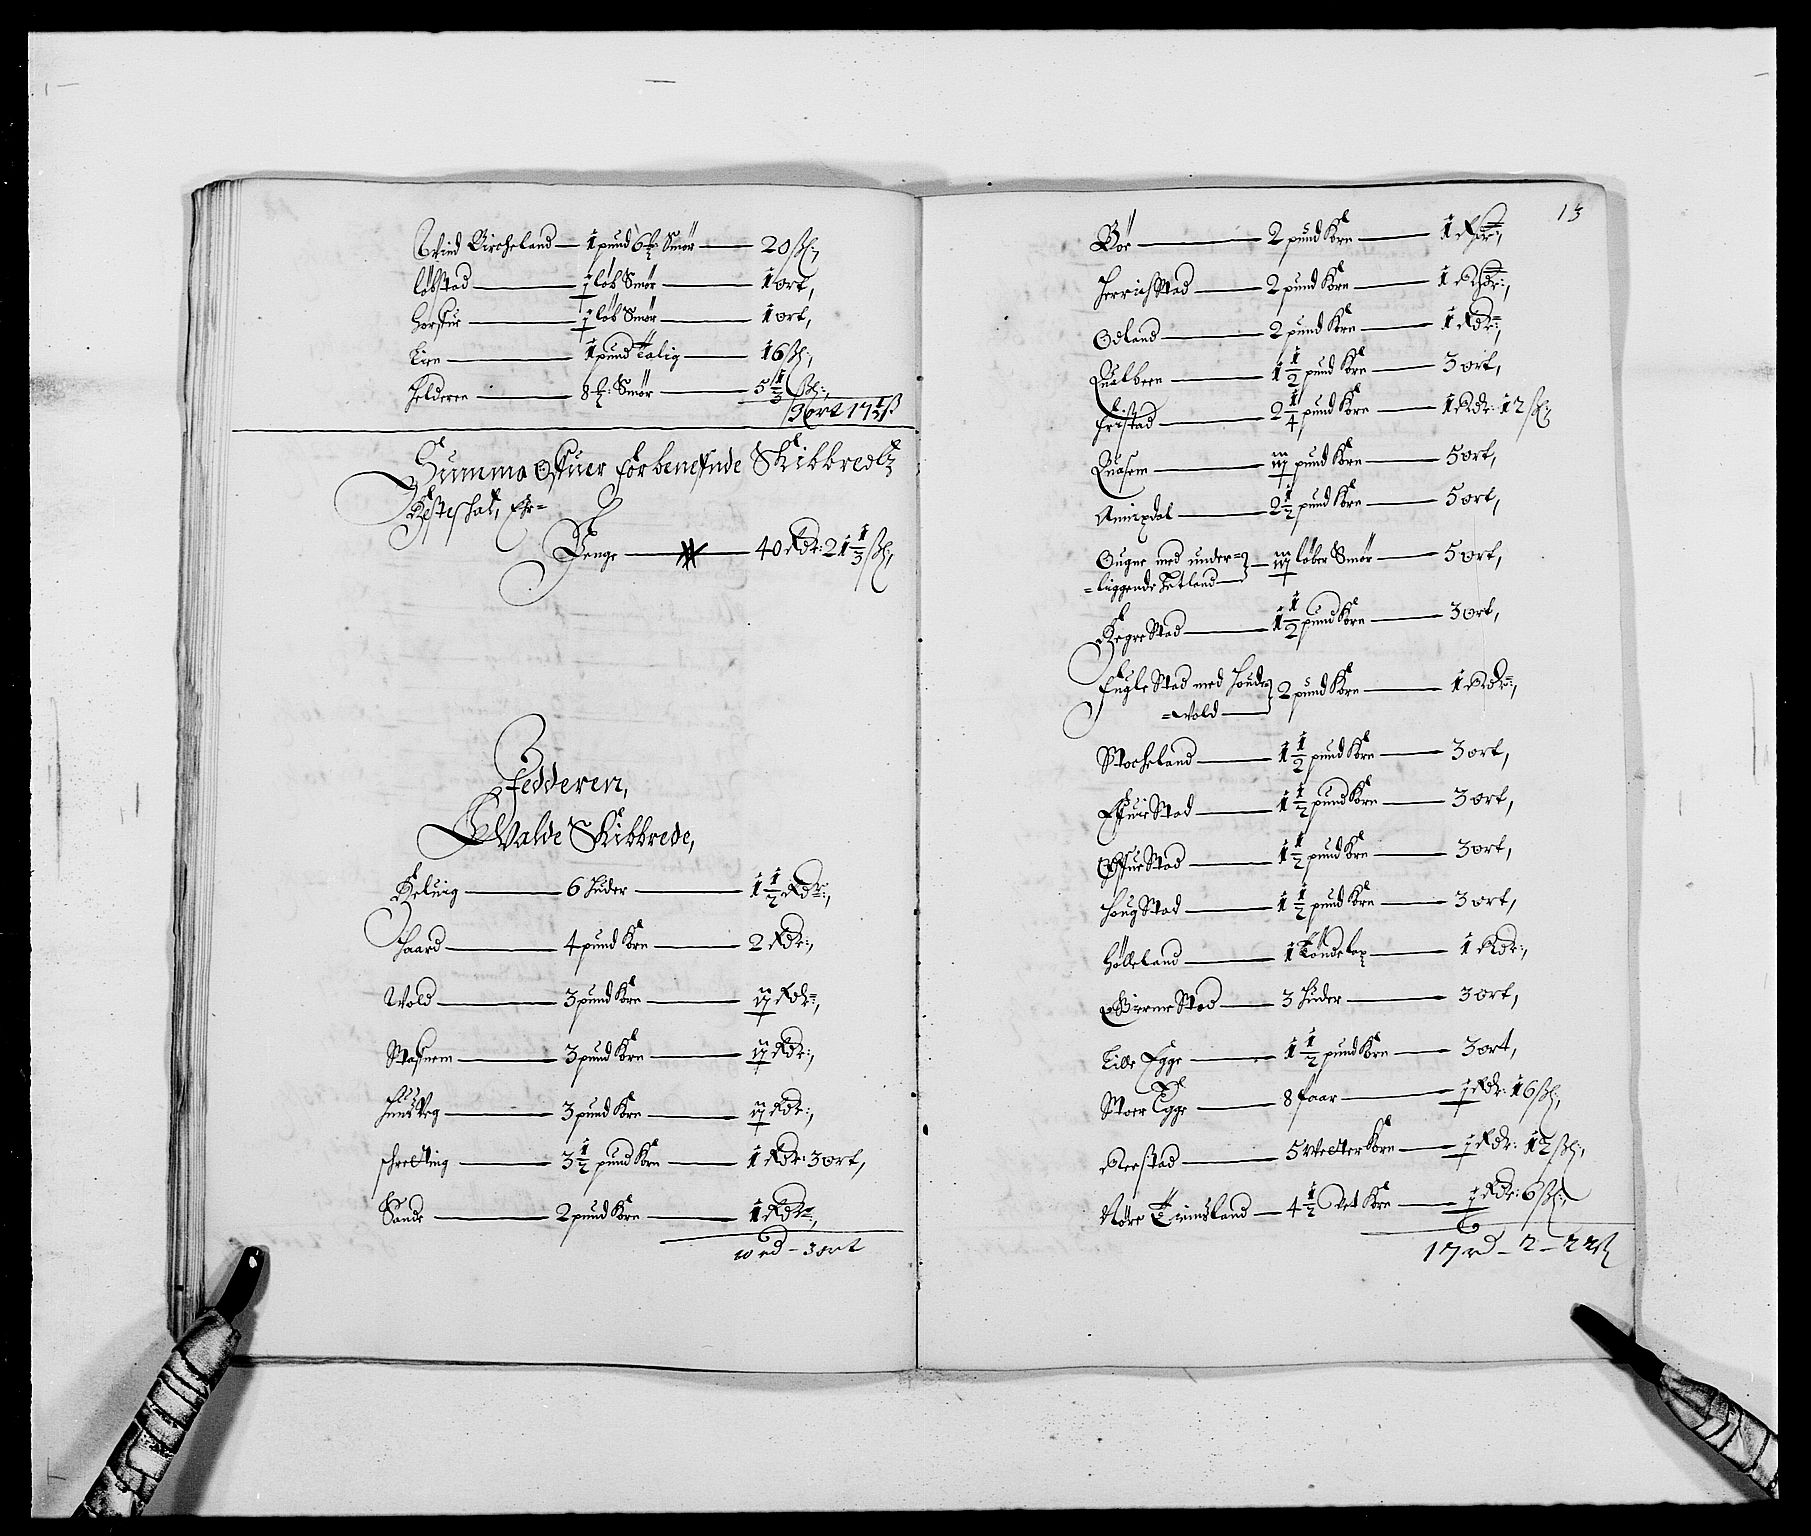 Qvind Kircheland — 1 pund 6 ℔ Smør — 20 ß;
løbstad — ½ løb Smør — 1 ort,
horssue — ½ løb Smør — 1 ort,
Lien — 1 pund talig — 16 ß;
helderen — 8 ℔: Smør — 5⅓ ß;
3 ort 17⅓ ß
Summa Ofuer forbenefnde Skibbredtz
Reste skat, Er=
Penge — 40 Rdr: 21⅓ ß;
Fedderen,
Walde Skibbrede,
Keluig — 6 huder — 1½ Rdr:,
haard — 4 pund Korn — 2 Rdr:,
Wold — 3 pund Korn — 1½ Rdr:,
Stafnem — 3 pund Korn — 1½ Rdr:,
— 3 pund Korn — 1½ Rdr:,
schreding — 3½ pund Korn — 1 Rdr: 3 ort,
Sande — 2 pund Korn — 1 Rdr:,
10 rd — 3 ort
13
Bør — 2 pund Korn — 1 Rdr:,
herrichstad — 2 pund Korn — 1 Rdr:,
Odland — 2 pund Korn — 1 Rdr:,
Qualbeen — 1½ pund Korn — 3 ort,
fristad — 2¼ pund Korn — 1 Rdr: 12 ß;
Quasem — 2½ pund Korn — 5 ort,
Amirxdal — 2½ pund Korn — 5 ort,
Ougne med under=
=liggende Tutland — 2½ løber Smør — 5 ort,
Regrestad — 1½ pund Korn — 3 ort,
fuglestad med houde
=Wold — 2 pund Korn — 1 Rdr:,
Stocheland — 1½ pund Korn — 3 ort,
Efuiestad — 1½ pund Korn — 3 ort,
Ofuestad — 1½ pund Korn — 3 ort,
hougstad — 1½ pund Korn — 3 ort,
hølleland — 1 tønde lax — 1 Rdr:,
Birmestad — 3 huder — 3 ort,
Lille Egge — 1½ pund Korn — 3 ort,
Stoer Egge — 8 faar — ½ Rdr: 16 ß;,
Reestad — 5 wetter Korn — ½ Rdr: 12 ß;,
Nøre Tuindsland — 4½ Vet Korn — ½ Rdr: 6 ß;,
17 rd — 2 — 22 ß